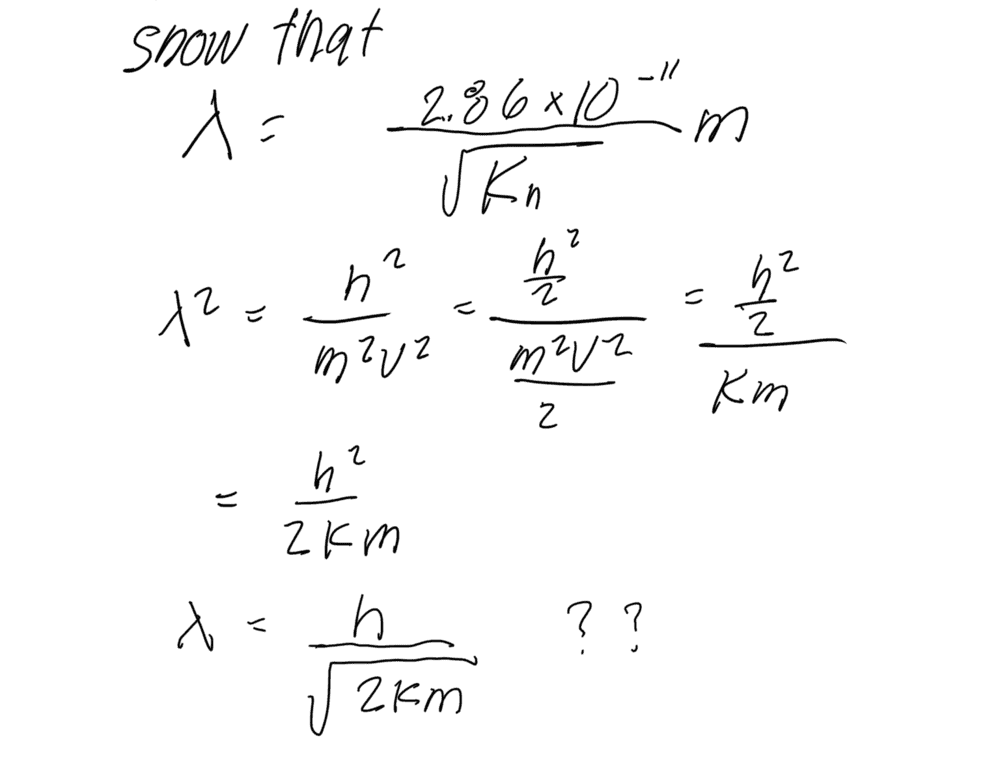 show that
λ = 2.86 × 10^-11 / √Kn m
λ² = h² / m²v² = (h²/2) / (m²v²/2) = (h²/2) / Km
= h² / 2Km
λ = h / √2Km ??